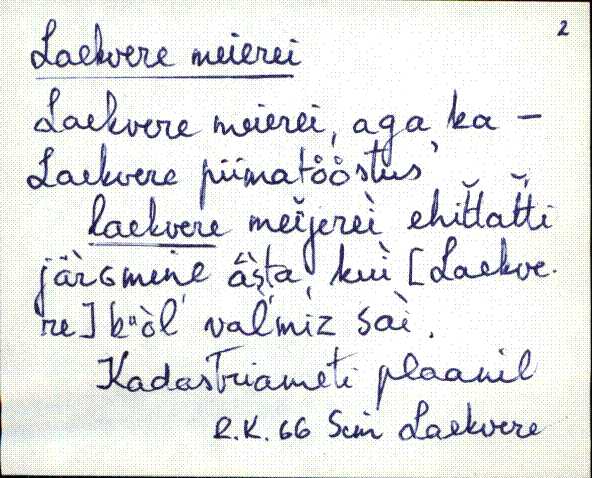 2
Laekvere meierei
Laekvere meierei, aga ka –
Laekvere piimatööstus
laekvere meĭjereì ehit̆tat̆ti
jä̀rGmine ä̀sta, kuì [Laekve-
re] kᵘòl´ val´miz saì.
Kadastriameti plaanil
R.K. 66 Sim Laekvere